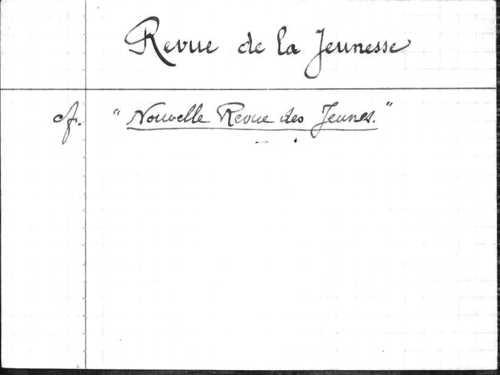 Revue de la Jeunesse
cf. "Nouvelle Revue des Jeunes."